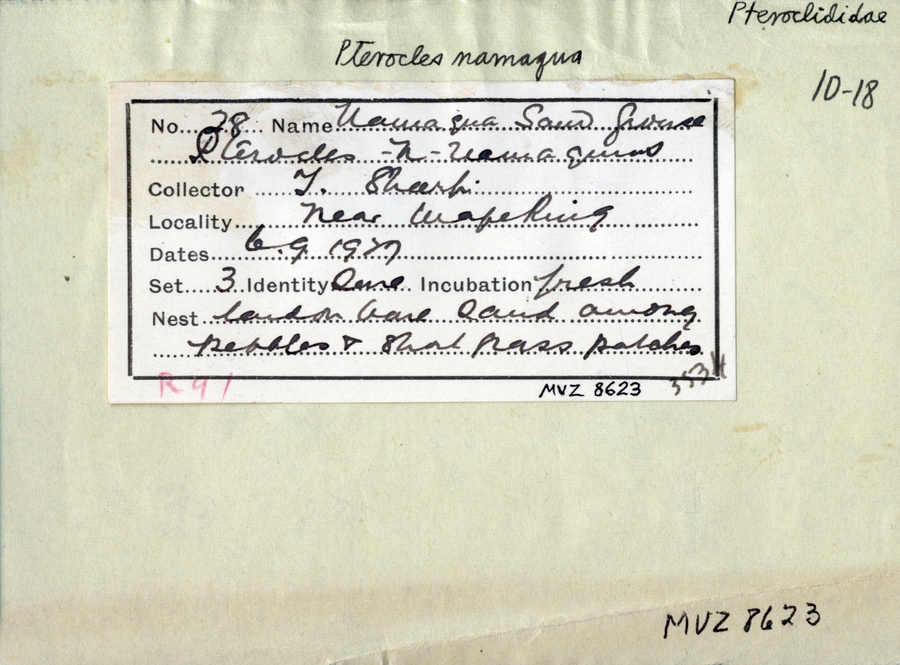 Pteroclididae
Pterocles namaqua
10-18
No... 78... Name Namaqua Sand Grouse
Pterocles - N - Namaquus
Collector ..... T. Sharp.
Locality..... Near Mafeking
Dates..... 6.9.1927
Set.... 3. Identity Sure. Incubation fresh
Nest .. laid on bare Sand among
pebbles & Short Grass patches
R 91
MVZ 8623
MVZ 8623